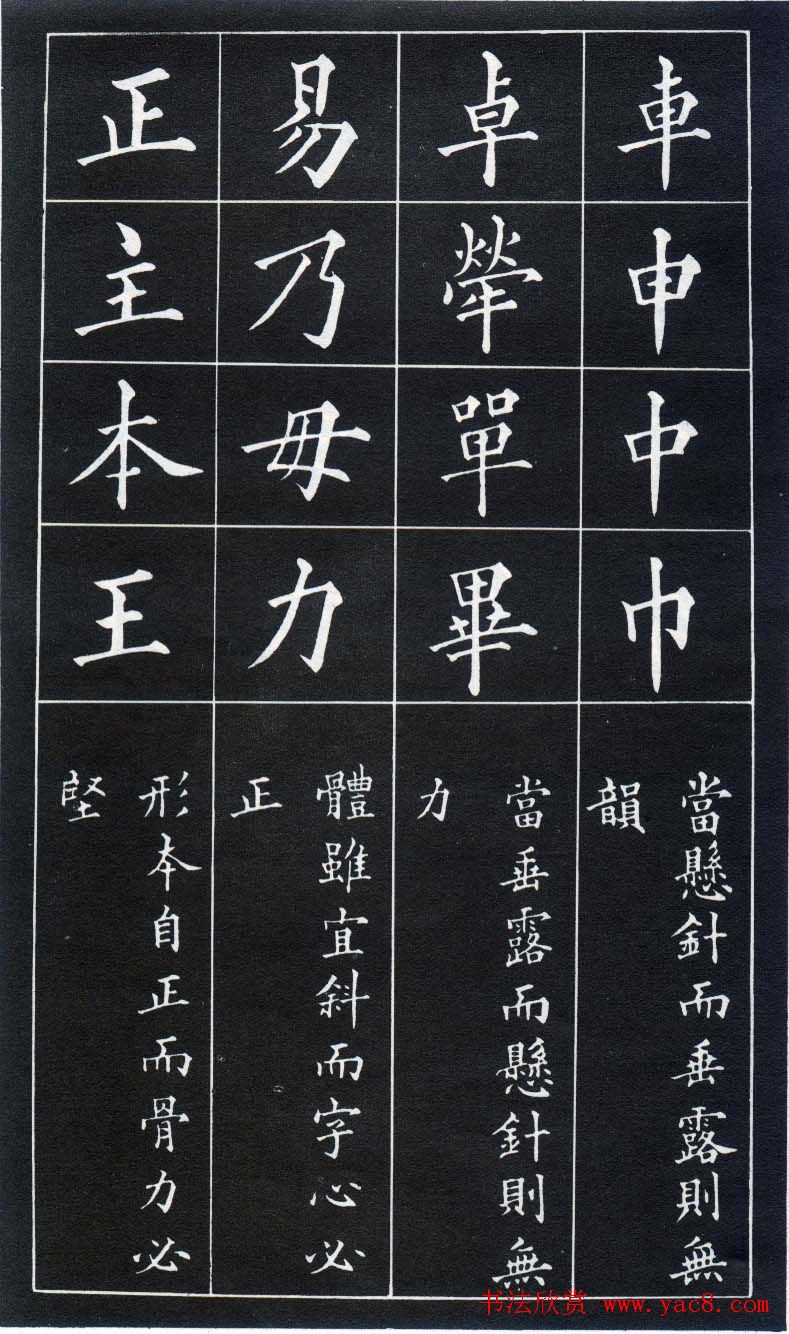 車申中巾
當懸針而垂露則無
韻
卓犖單畢
當垂露而懸針則無
力
易乃毋力
體雖宜斜而字心必
正
正主本王
形本自正而骨力必
堅
书法欣赏 www.yac8.com